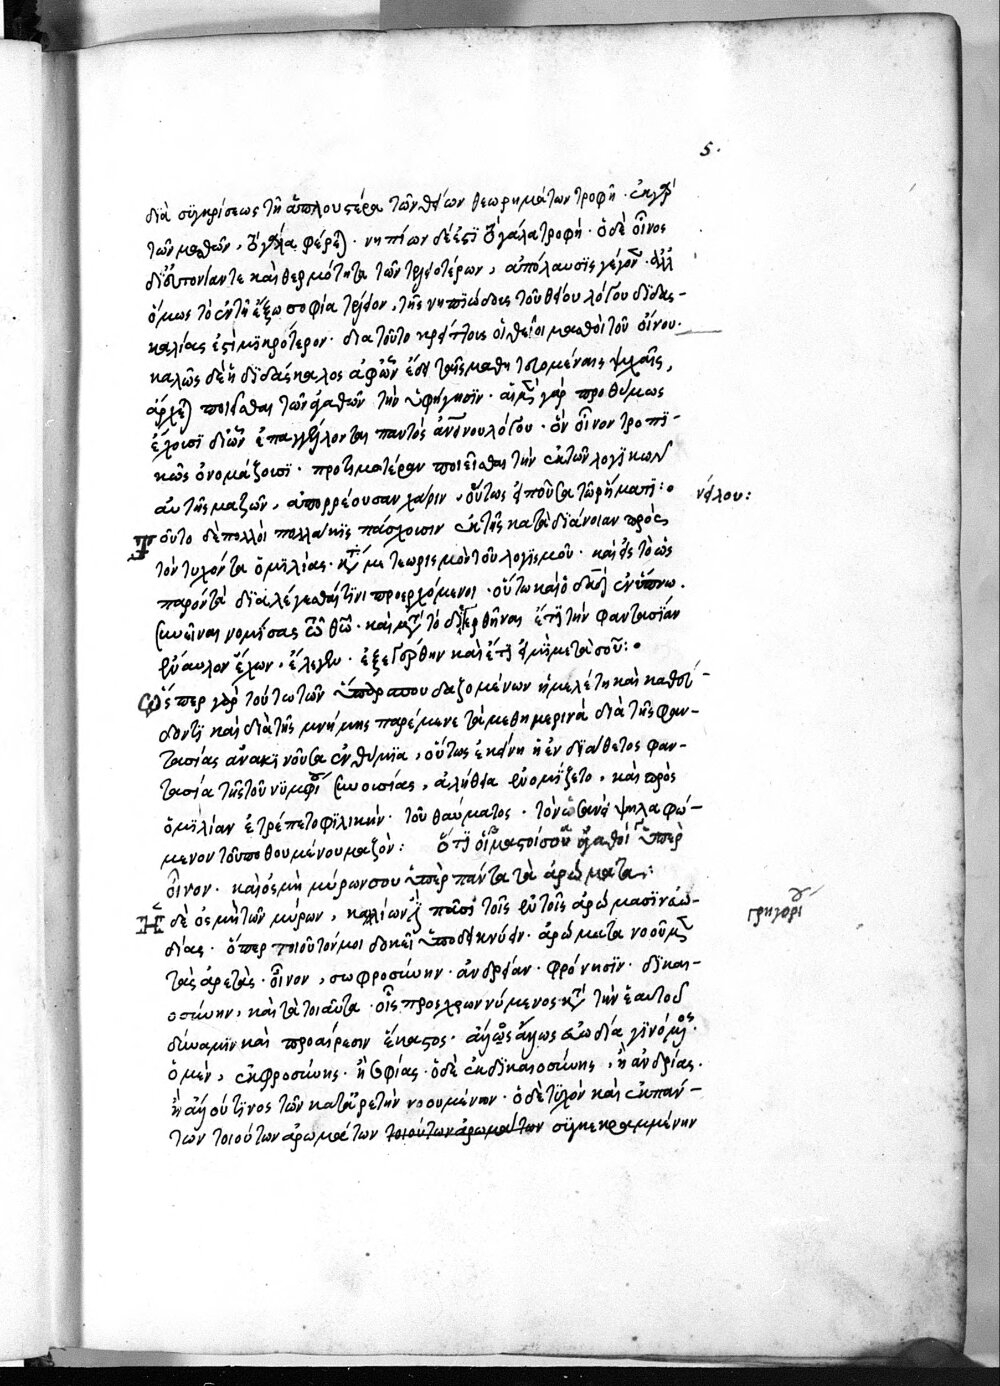 5.
διὰ συγκρίσεως τῇ ἁπλουστέρᾳ τῶν θείων θεωρημάτων τροφῇ · ἐκ γὰρ
τῶν μαζῶν, τὸ γάλα φέρεται · νηπίων δέ ἐστι τὸ γάλα τροφή · ὁ δὲ οἶνος
δι' εὐτονίαν τε καὶ θερμότητα τῶν τελειοτέρων, ἀπόλαυσις γέγονεν · ἀλλ'
ὅμως τὸ ἐν τῇ ἔξω σοφίᾳ τέλειον, τῆς νηπιώδους τοῦ θείου λόγου διδασ-
καλίας ἐστὶ μικρότερον · διὰ τοῦτο κρείττους οἱ θεῖοι μαζοὶ τοῦ οἴνου ·
καλῶς δὲ ἡ διδάσκαλος ἀφ' ὧν ἔδει ταῖς μαθητευομέναις ψυχαῖς,
ἄρχεται ποιεῖσθαι τῶν ἀγαθῶν τὴν ὑφήγησιν ·
ἔχουσι δι' ὧν ἐπαγγέλλονται παντὸς ἀνθρωπίνου λόγου · ὃν οἶνον τροπι-
κῶς ὀνομάζουσι · προτιμοτέραν ποιεῖσθαι τὴν ἐκ τῶν λογικῶν
αὐτῆς μαζῶν, ἀπορρέουσαν χάριν, οὕτως εἰποῦσα τῷ ῥήματι:
νείλου:
Τοῦτο δὲ πολλοὶ πολλάκις πάσχουσιν ἐκ τῆς κατὰ διάνοιαν πρὸς
τὸν τυχόντα ὁμιλίας · κατὰ τὸν μετεωρισμὸν τοῦ λογισμοῦ · καὶ εἰς τὸ ὡς
παρόντα διαλέγεσθαί τινι προερχόμενοι · οὕτω καὶ ὁ δαυὶδ ἐν ὕπνῳ
συνεῖναι νομίσας τῷ θεῷ · καὶ μετὰ τὸ διεγερθῆναι ἔτι τὴν φαντασίαν
ἔναυλον ἔχων, ἔλεγεν · ἐξεγέρθην καὶ ἔτι εἰμὶ μετὰ σοῦ:
Ὥσπερ γὰρ τούτω τῶν σπουδαζομένων ἡ μελέτη καὶ καθεύ-
δοντι καὶ διὰ τῆς μνήμης παρέμενε τὰ μεθημερινὰ διὰ τῆς φαν-
τασίας ἀνακινοῦσα ἐνθύμια, οὕτως ἐκείνη ἡ ἐνδιάθετος φαν-
τασία τῆς τοῦ νυμφίου συνουσίας, ἀλήθεια ἐνομίζετο, καὶ πρὸς
ὁμιλίαν ἐτρέπετο φιλικήν · τοῦ θαύματος · τὸν ὡσανεὶ ψηλαφώ-
μενον τοῦ ποθουμένου μαζόν: ὅτι οἱ μαστοί σου ἀγαθοὶ ὑπὲρ
οἶνον · καὶ ὀσμὴ μύρων σου ὑπὲρ πάντα τὰ ἀρώματα:
γρηγορίου
Ἡ δὲ ὀσμὴ τῶν μύρων, καλλίων ἦν πάσης τῆς ἐν τοῖς ἀρώμασιν εὐω-
δίας · ὅπερ τοιοῦτόν μοι δοκεῖ ὑποδεικνύειν · ἀρώματα νοοῦμεν
τὰς ἀρετὰς · οἷον, σωφροσύνην · ἀνδρείαν · φρόνησιν · δικαι-
οσύνην, καὶ τὰ τοιαῦτα · οἷς προσχρωννύμενος κατὰ τὴν ἑαυτοῦ
δύναμιν καὶ προαίρεσιν ἕκαστος · ἄλλος ἄλλως εὐωδία γινόμενος ·
ὁ μὲν, ἐκ φροσύνης · ἢ σοφίας · ὁ δὲ ἐκ δικαιοσύνης, ἢ ἀνδρίας ·
ἢ ἄλλου τινος τῶν κατ' ἀρετὴν νοουμένων · ὁ δὲ τυχὸν καὶ ἐκ πάν-
των τοιούτων ἀρωμάτων τοιούτων ἀρωμάτων συγκεκραμμένην